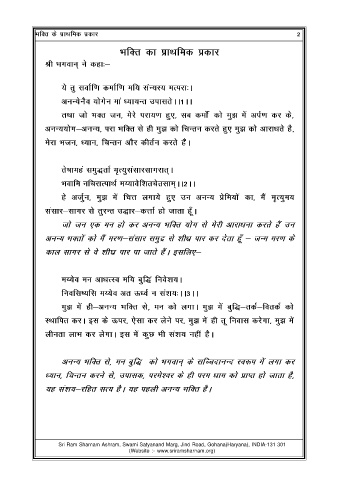 भक्ति के प्राथमिक प्रकार 2
भक्ति का प्राथमिक प्रकार
श्री भगवान् ने कहाः–
ये तु सर्वाणि कर्माणि मयि संन्यस्य मत्पराः।
अनन्येनैव योगेन मां ध्यायन्त उपासते।।1।।
तथा जो भक्त जन, मेरे परायण हुए, सब कर्मों को मुझ में अर्पण कर के,
अनन्ययोग–अनन्य, परा भक्ति से ही मुझ को चिन्तन करते हुए मुझ को आराधते है,
मेरा भजन, ध्यान, चिन्तन और कीर्तन करते हैं।
तेषामहं समुद्धर्ता मृत्युसंसारसागरात्।
भवामि नचिरात्पार्थ मय्यावेशितचेतसाम्।।2।।
हे अर्जुन, मुझ में चित्त लगाये हुए उन अनन्य प्रेमियों का, मैं मृत्युमय
संसार–सागर से तुरन्त उद्धार–कर्त्ता हो जाता हूँ।
जो जन एक मन हो कर अनन्य भक्ति योग से मेरी आराधना करते हैं उन
अनन्य भक्तों को मैं मरण–संसार समुद्र से शीघ्र पार कर देता हूँ – जन्म मरण के
काल सागर से वे शीघ्र पार पा जाते हैं। इसलिए–
मय्येव मन आधत्स्व मयि बुद्धिं निवेशय।
निवसिष्यसि मय्येव अत ऊर्ध्वं न संशयः।।3।।
मुझ में ही–अनन्य भक्ति से, मन को लगा। मुझ में बुद्धि–तर्क–वितर्क को
स्थापित कर। इस के ऊपर, ऐसा कर लेने पर, मुझ में ही तू निवास करेगा, मुझ में
लीनता लाभ कर लेगा। इस में कुछ भी संशय नहीं है।
अनन्य भक्ति से, मन बुद्धि को भगवान् के सच्चिदानन्द स्वरूप में लगा कर
ध्यान, चिन्तन करने से, उपासक, परमेश्वर के ही परम धाम को प्राप्त हो जाता है,
यह संशय–रहित सत्य है। यह पहली अनन्य भक्ति है।
Sri Ram Sharnam Ashram, Swami Satyanand Marg, Jind Road, Gohana(Haryana), INDIA-131 301
(Website :- www.sriramsharnam.org)